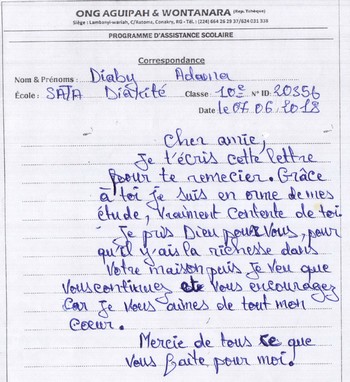 ONG AGUIPAH & WONTANARA (Rep. Tchèque)
Siège : Lambanyi-wariah, C/Ratoma, Conakry, RG - Tél. : (224) 664 26 29 37/624 031 338
PROGRAMME D'ASSISTANCE SCOLAIRE
Correspondance
Nom & Prénoms : Diaby Adama
École : SATA Diakité Classe 10e N° ID: 20356
Date le 07 06 2018
Cher amie,
Je t'écris cette lettre
pour te remecier. Grâce
à toi je suis en orme de mes
étude, vraiment contente de toi
Je pris Dieu pour Vous, pour
qu'il y'ais la richesse dans
Votre maison puis Je veu que
Vous continuez et vous encouragez
Car Je Vous aimes de tout mon
Coeur.
Mercie de tous ce que
Vous faite pour moi.